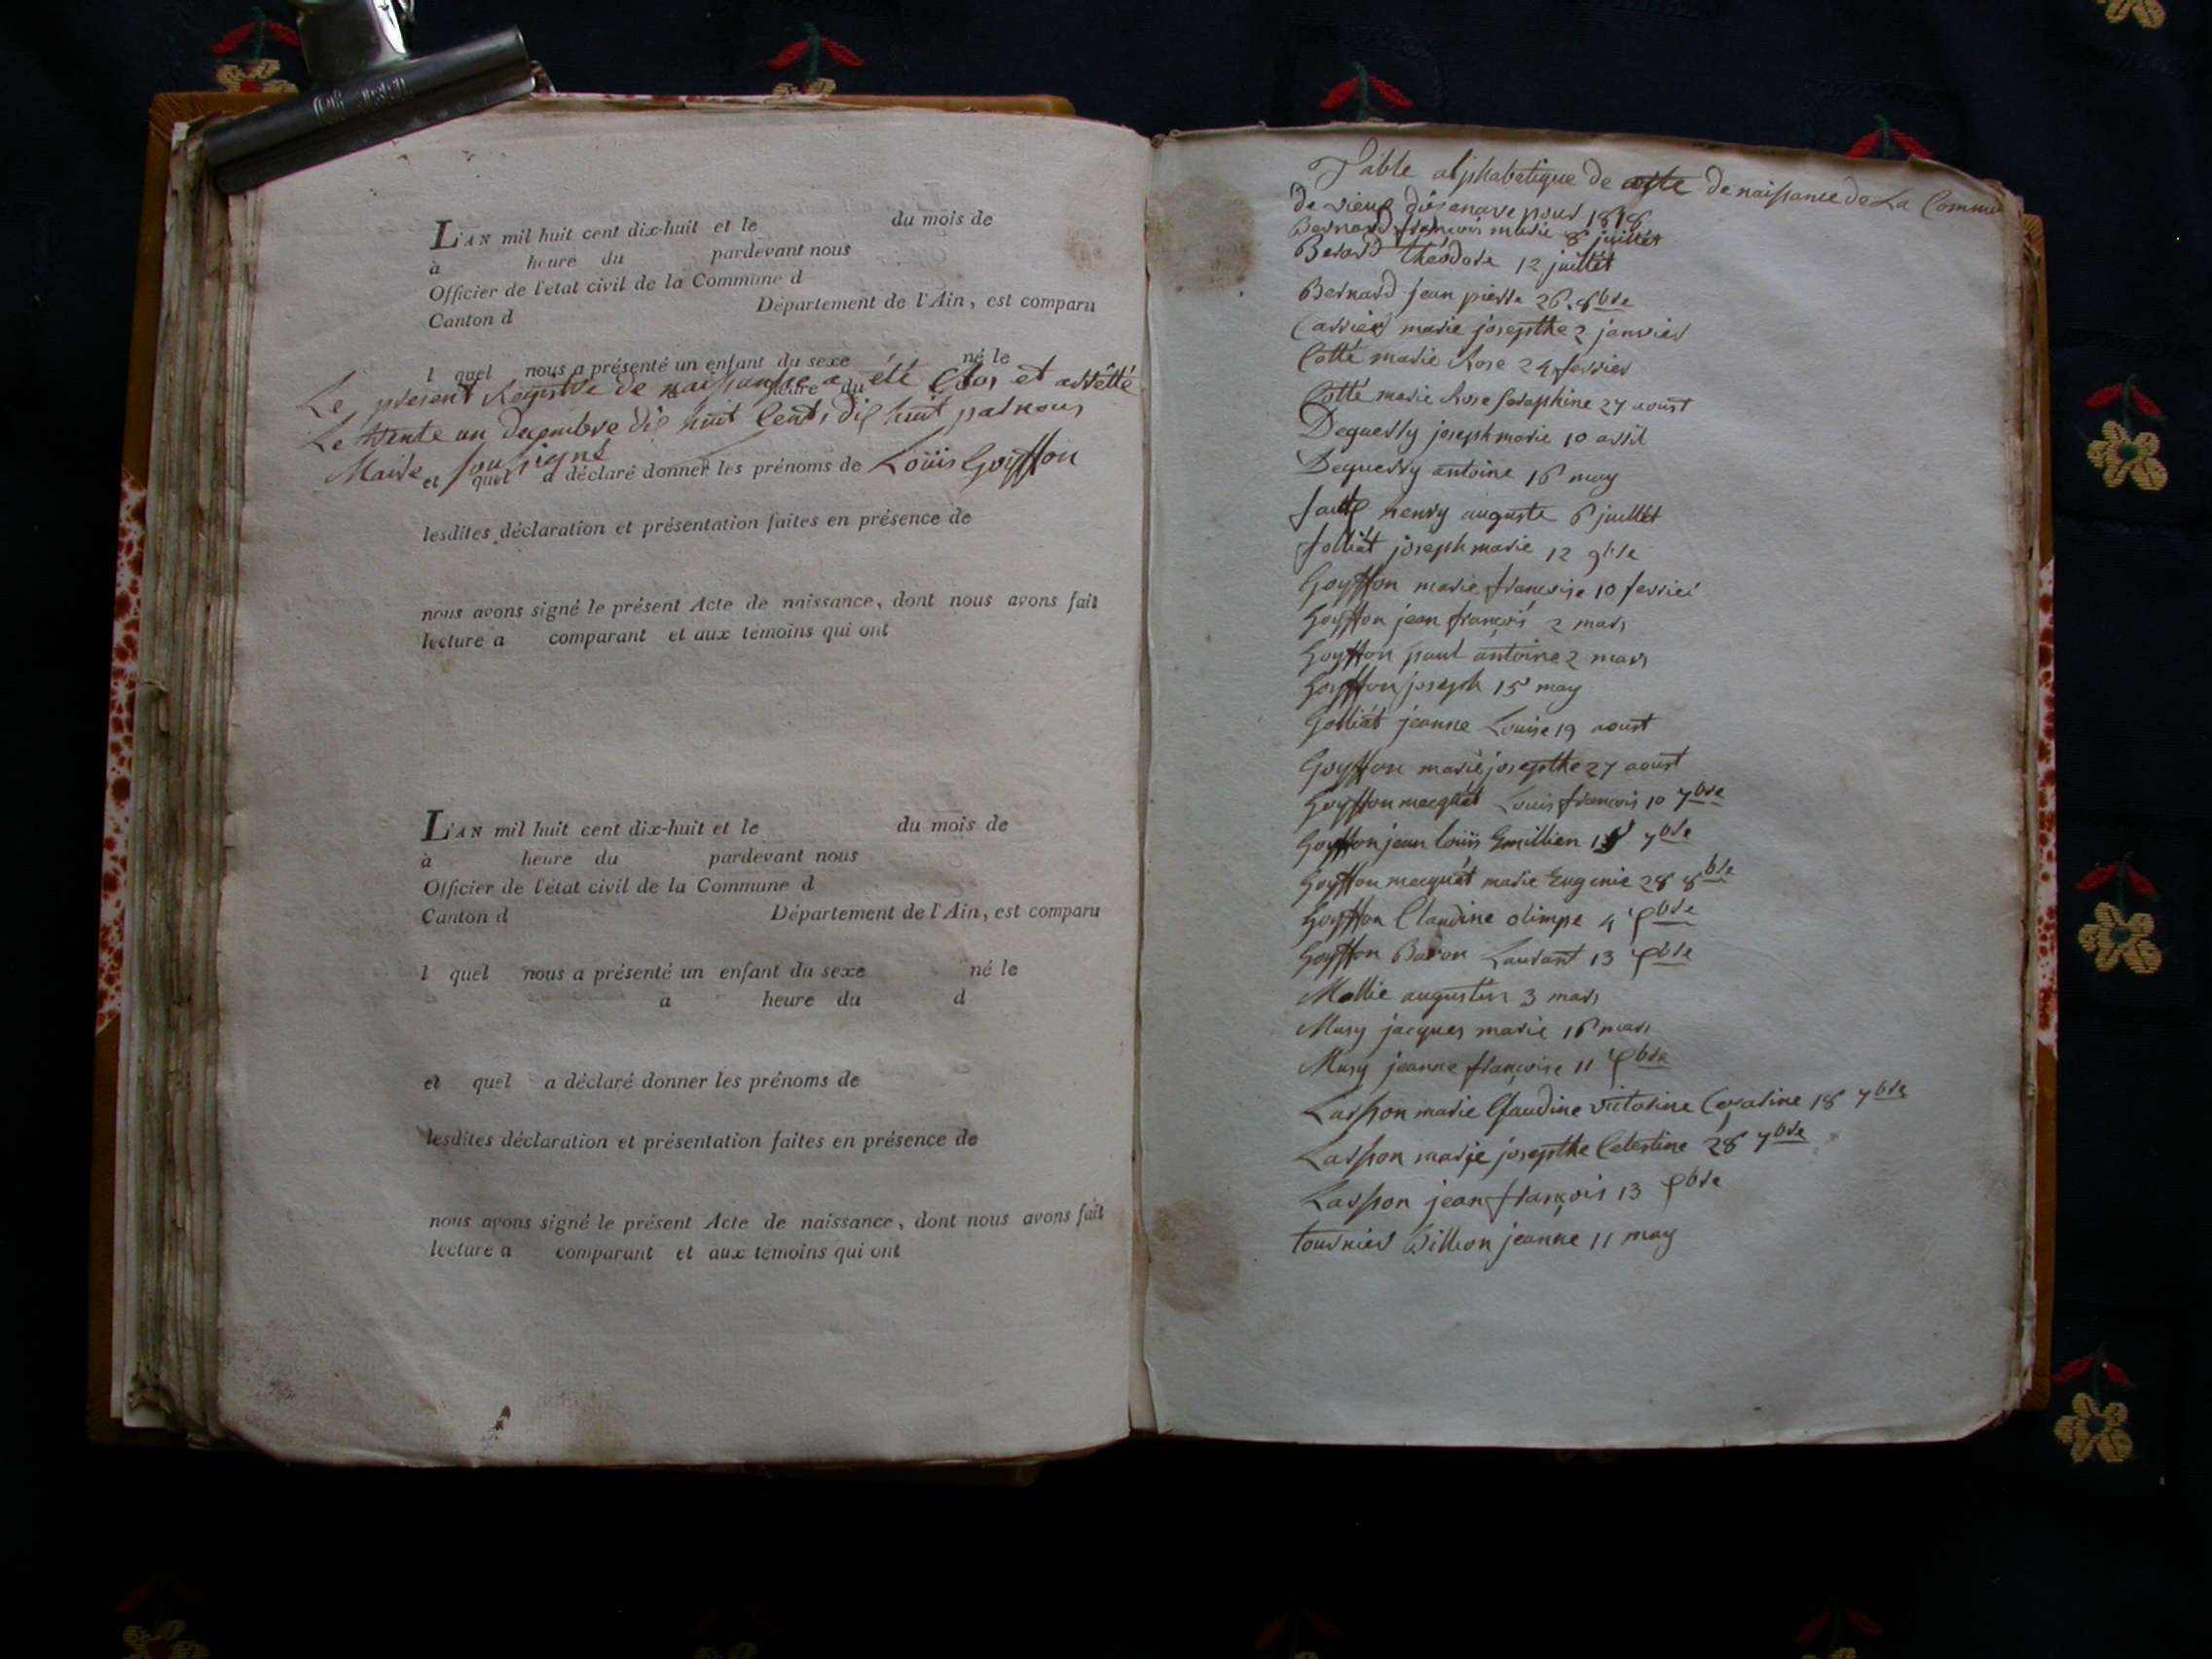 L'AN mil huit cent dix-huit et le du mois de
à heure du pardevant nous
Officier de l'état civil de la Commune d
Canton d Département de l'Ain, est comparu
l quel nous a présenté un enfant du sexe né le
heure du
Le present Registre de naissance a été Clos et arrêtté
Le trente un decembre dix huit Cents dix huit par nous
Maire soussigné Loüis Goyffon
et quel a déclaré donner les prénoms de
lesdites déclaration et présentation faites en présence de
nous avons signé le présent Acte de naissance, dont nous avons fait
lecture a comparant et aux témoins qui ont
L'AN mil huit cent dix-huit et le du mois de
à heure du pardevant nous
Officier de l'état civil de la Commune d
Canton d Département de l'Ain, est comparu
l quel nous a présenté un enfant du sexe né le
a heure du d
et quel a déclaré donner les prénoms de
lesdites déclaration et présentation faites en présence de
nous avons signé le présent Acte de naissance, dont nous avons fait
lecture a comparant et aux témoins qui ont
Table alphabetique de acte de naissance de La Commu
de vieux d'isenave pour 1818
Bernard françois marie 8 juillet
Berard théodore 12 juillét
Bernard jean pierre 26 8bre
Carrier marie josepthe 2 janvier
Cotté marie Rose 24 fevrier
Cotté marie Rose Seraphine 27 aoust
Dequerry joseph marie 10 avril
Dequerry antoine 16 may
henry auguste 6 juillét
folliét joseph marie 12 9bre
Goyffon marie françoise 10 fevrier
Goyffon jean françois 2 mars
Goyffon paul antoine 2 mars
Goyffon joseph 15 may
Golliét jeanne Louise 19 aoust
Goyffon marie josepthe 27 aoust
Goyffon macquét Louis françois 10 7bre
Goyffon jean loüis Emillien 7bre
Goyffon macquét marie Eugenie 28 8bre
Goyffon Claudine olimpe 4 9bre
Goyffon Baron Laurant 13 9bre
Mollie augustin 3 mars
Musy jacques marie 16 mars
Musy jeanne françoise 11 9bre
Lasson marie Claudine victorine Cesarine 18 7bre
Lasson marie josepthe Celestine 28 7bre
Lasson jean françois 13 9bre
tournier Billion jeanne 11 may